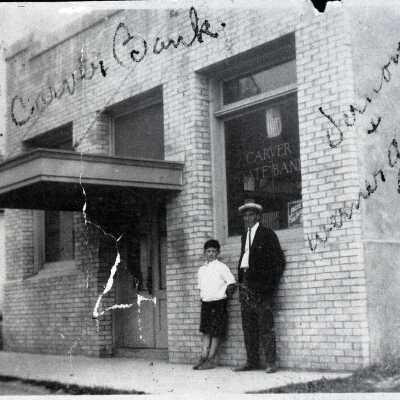 Carver Bank.
CARVER
STATE BANK
Vernon
+
Werner